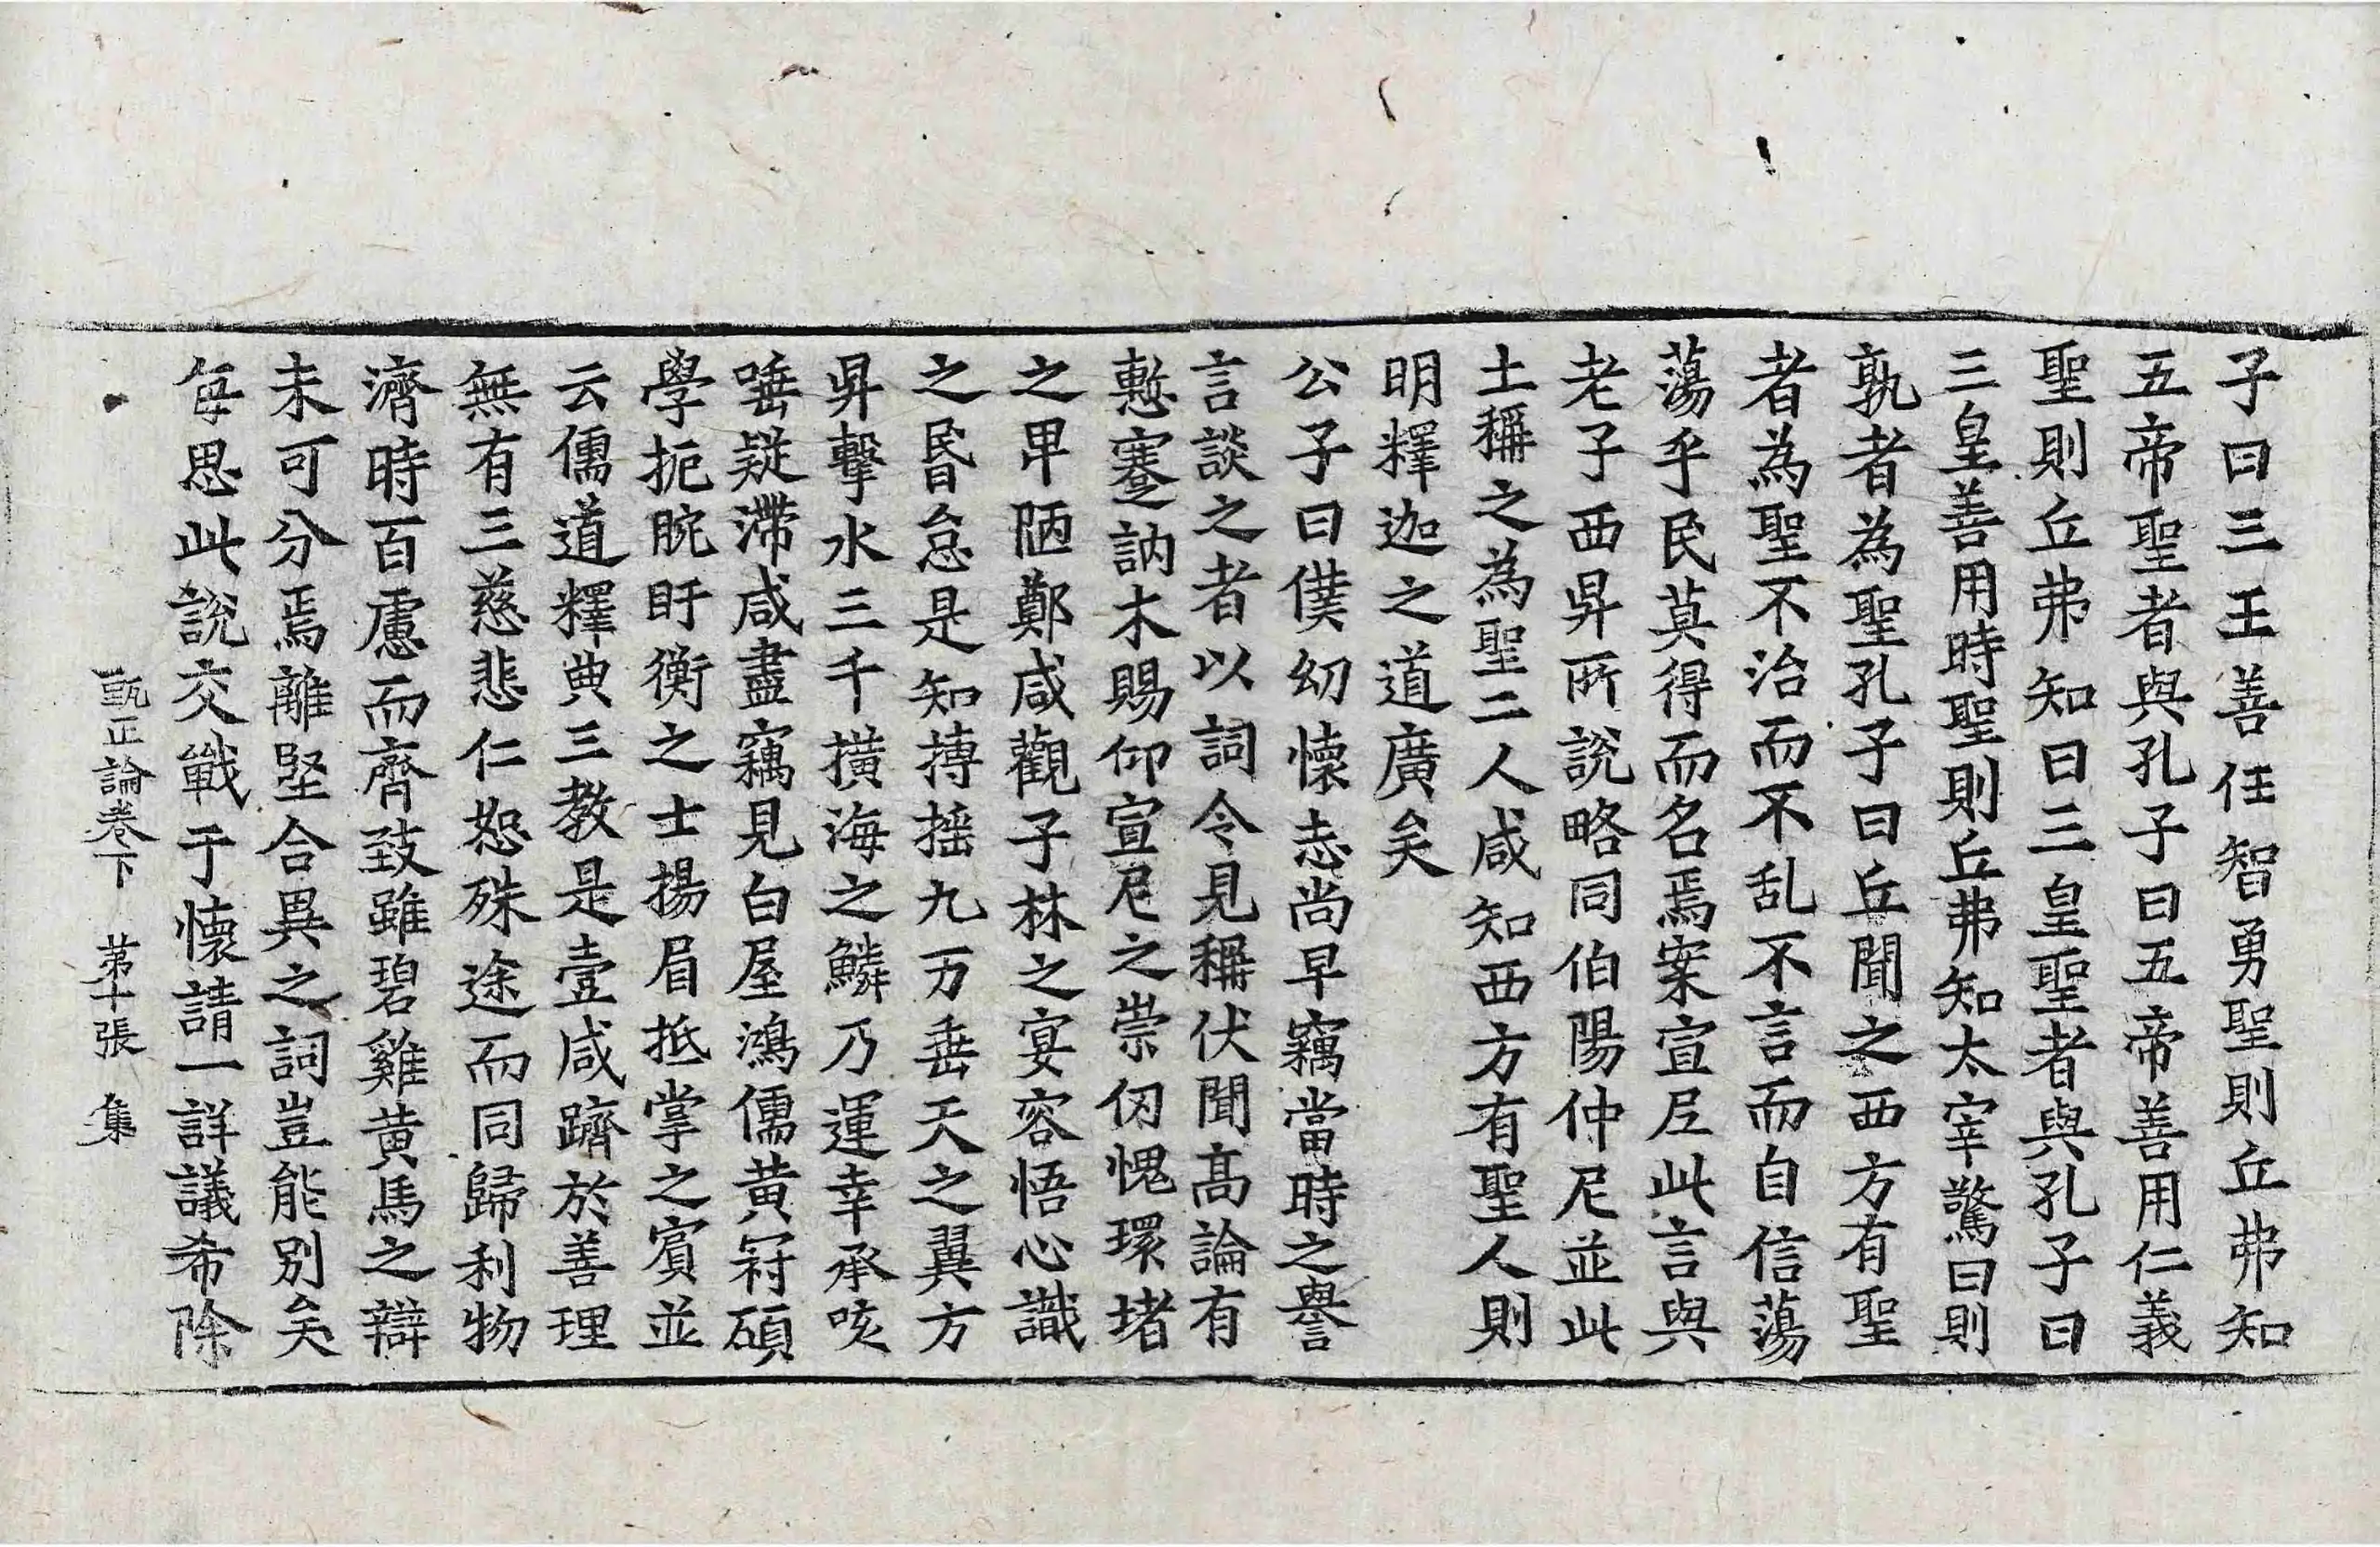 子曰三王善任智勇聖則丘弗知
五帝聖者與孔子曰五帝善用仁義
聖則丘弗知曰三皇聖者與孔子曰
三皇善用時聖則丘弗知太宰驚曰則
孰者為聖孔子曰丘聞之西方有聖
者為聖不治而不乱不言而自信蕩
蕩乎民莫得而名焉案宣尼此言與
老子西昇所說略同伯陽仲尼並此
土稱之為聖二人咸知西方有聖人則
明釋迦之道廣矣
公子曰僕幼懷志尚早竊當時之譽
言談之者以詞令見稱伏聞高論有
慙蹇訥木賜仰宣尼之崇仞愧環堵
之卑陋鄭咸觀子林之宴容悟心識
之昬怠是知摶搖九万垂天之翼方
昇擊水三千橫海之鱗乃運幸承咳
唾疑滯咸盡竊見白屋鴻儒黃冠碩
學扼腕盱衡之士揚眉抵掌之賓並
云儒道釋典三教是壹咸躋於善理
無有三慈悲仁恕殊途而同歸利物
濟時百慮而齊致雖碧雞黃馬之辯
未可分焉離堅合異之詞豈能別矣
每思此說交戰于懷請一詳議希除
甄正論卷下 第十張 集